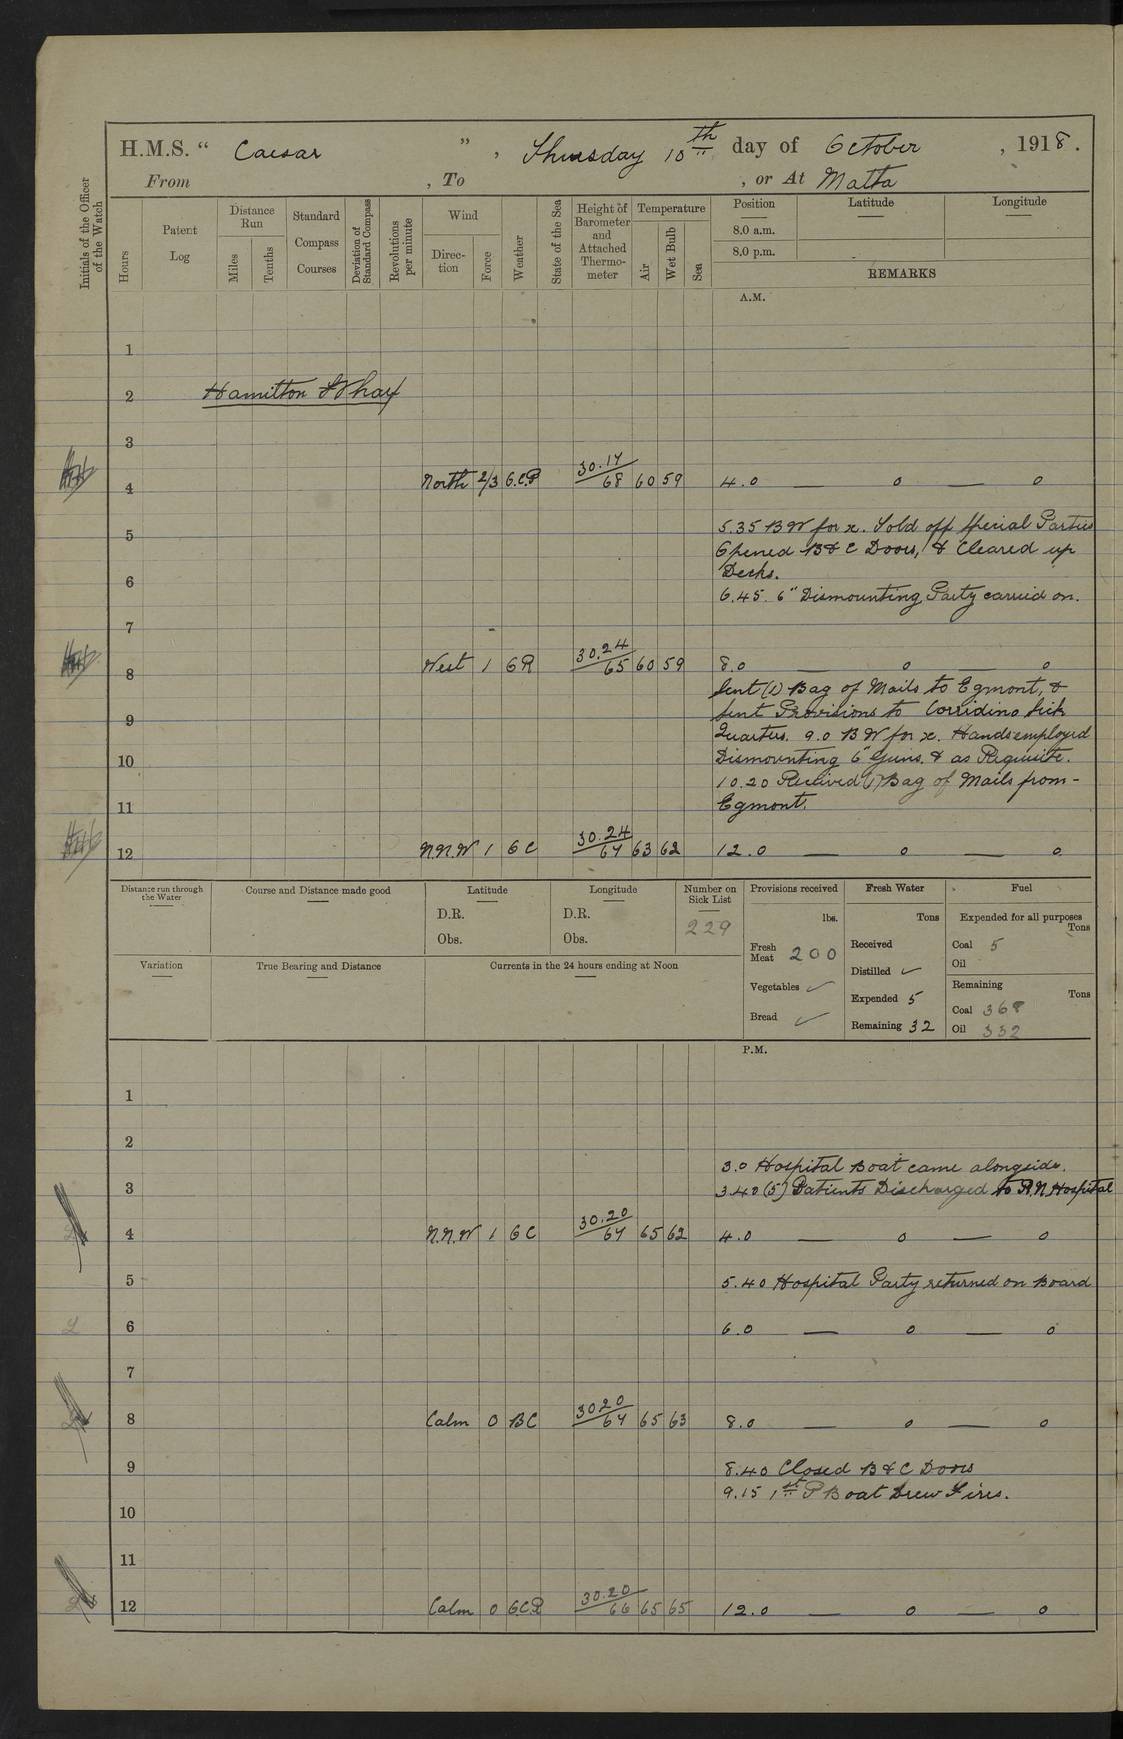 H.M.S. “ Caesar ” , Thursday 10th day of October , 1918.
From , To , or At Malta
Initials of the Officer of the Watch
Hours
Patent Log
Distance Run
Miles
Tenths
Standard Compass Courses
Deviation of Standard Compass
Revolutions per minute
Wind
Direction
Force
Weather
State of the Sea
Height of Barometer and Attached Thermometer
Temperature
Air
Wet Bulb
Sea
Position
8.0 a.m.
8.0 p.m.
Latitude
Longitude
REMARKS
A.M.
1
2 Hamilton Wharf
3
4 North 2/3 O.C.P 30.14/68 60 59 4.0 — o — o
5 5.35 B W for x. Told off Special Parties
Opened B & C Doors, & Cleared up
Decks.
6 6.45. 6" Dismounting Party carried on.
7
8 West 1 OR 30.24/65 60 59 8.0 — o — o
Sent (1) Bag of Mails to Egmont, &
9 Sent Provisions to Corridino Sick
Quarters. 9.0 B W for x. Hands employed
10 Dismounting 6" Guns. & as Requisite.
10.20 Received (1) Bag of Mails from -
11 Egmont.
12 N.N.W 1 O C 30.24/64 63 62 12.0 — o — o
Distance run through the Water
Course and Distance made good
Latitude
D.R.
Obs.
Longitude
D.R.
Obs.
Number on Sick List
229
Provisions received
lbs.
Fresh Meat 200
Vegetables ✓
Bread ✓
Fresh Water
Tons
Received
Distilled ✓
Expended 5
Remaining 32
Fuel
Expended for all purposes
Tons
Coal 5
Oil
Remaining
Tons
Coal 368
Oil 332
Variation
True Bearing and Distance
Currents in the 24 hours ending at Noon
P.M.
1
2
3.0 Hospital Boat came alongside.
3 3.40 (5) Patients Discharged to R.N. Hospital
4 N.N.W 1 O C 30.20/64 65 62 4.0 — o — o
5 5.40 Hospital Party returned on Board
6 6.0 — o — o
7
8 Calm 0 B C 30.20/64 65 63 8.0 — o — o
9 8.40 Closed B & C Doors
9.15 1st P Boat Drew Fires.
10
11
12 Calm 0 O.C.R 30.20/66 65 65 12.0 — o — o